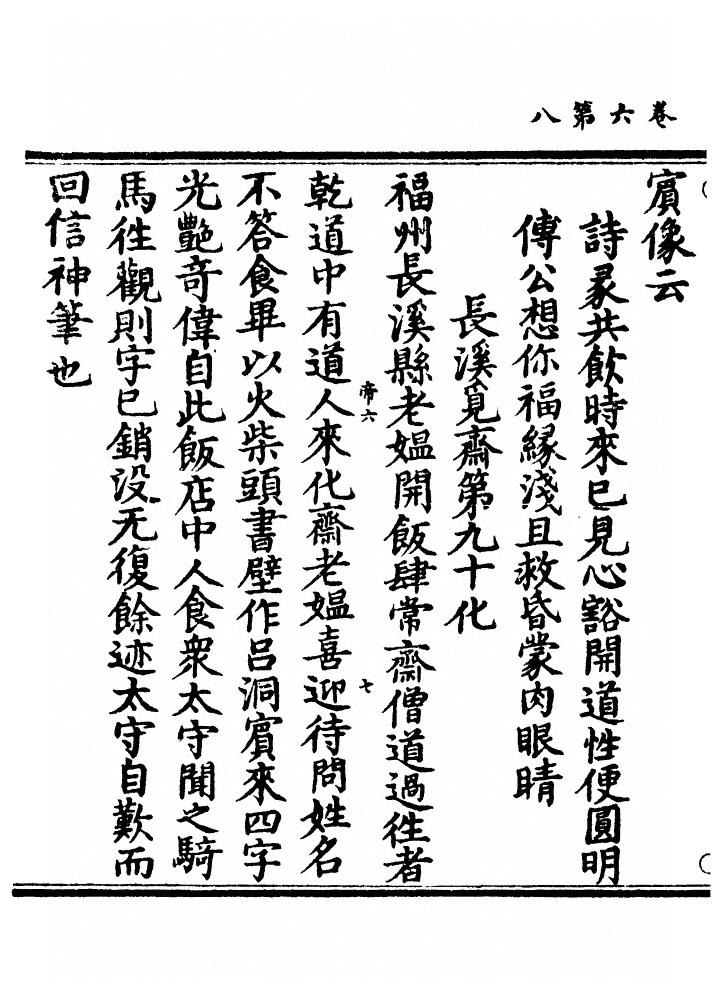 卷六第八
賔像云
詩彖共飲時來已見心豁開道性便圓明
傅公想你福緣淺且救昏蒙肉眼睛
長溪覓齋第九十化
福州長溪縣老媪開飯肆常齋僧道過徃者
帝六
七
乾道中有道人來化齋老媪喜迎待問姓名
不答食畢以火柴頭書壁作吕洞賔來四字
光艷竒偉自此飯店中人食衆太守聞之騎
馬徃觀則字已銷没无復餘迹太守自歎而
回信神筆也